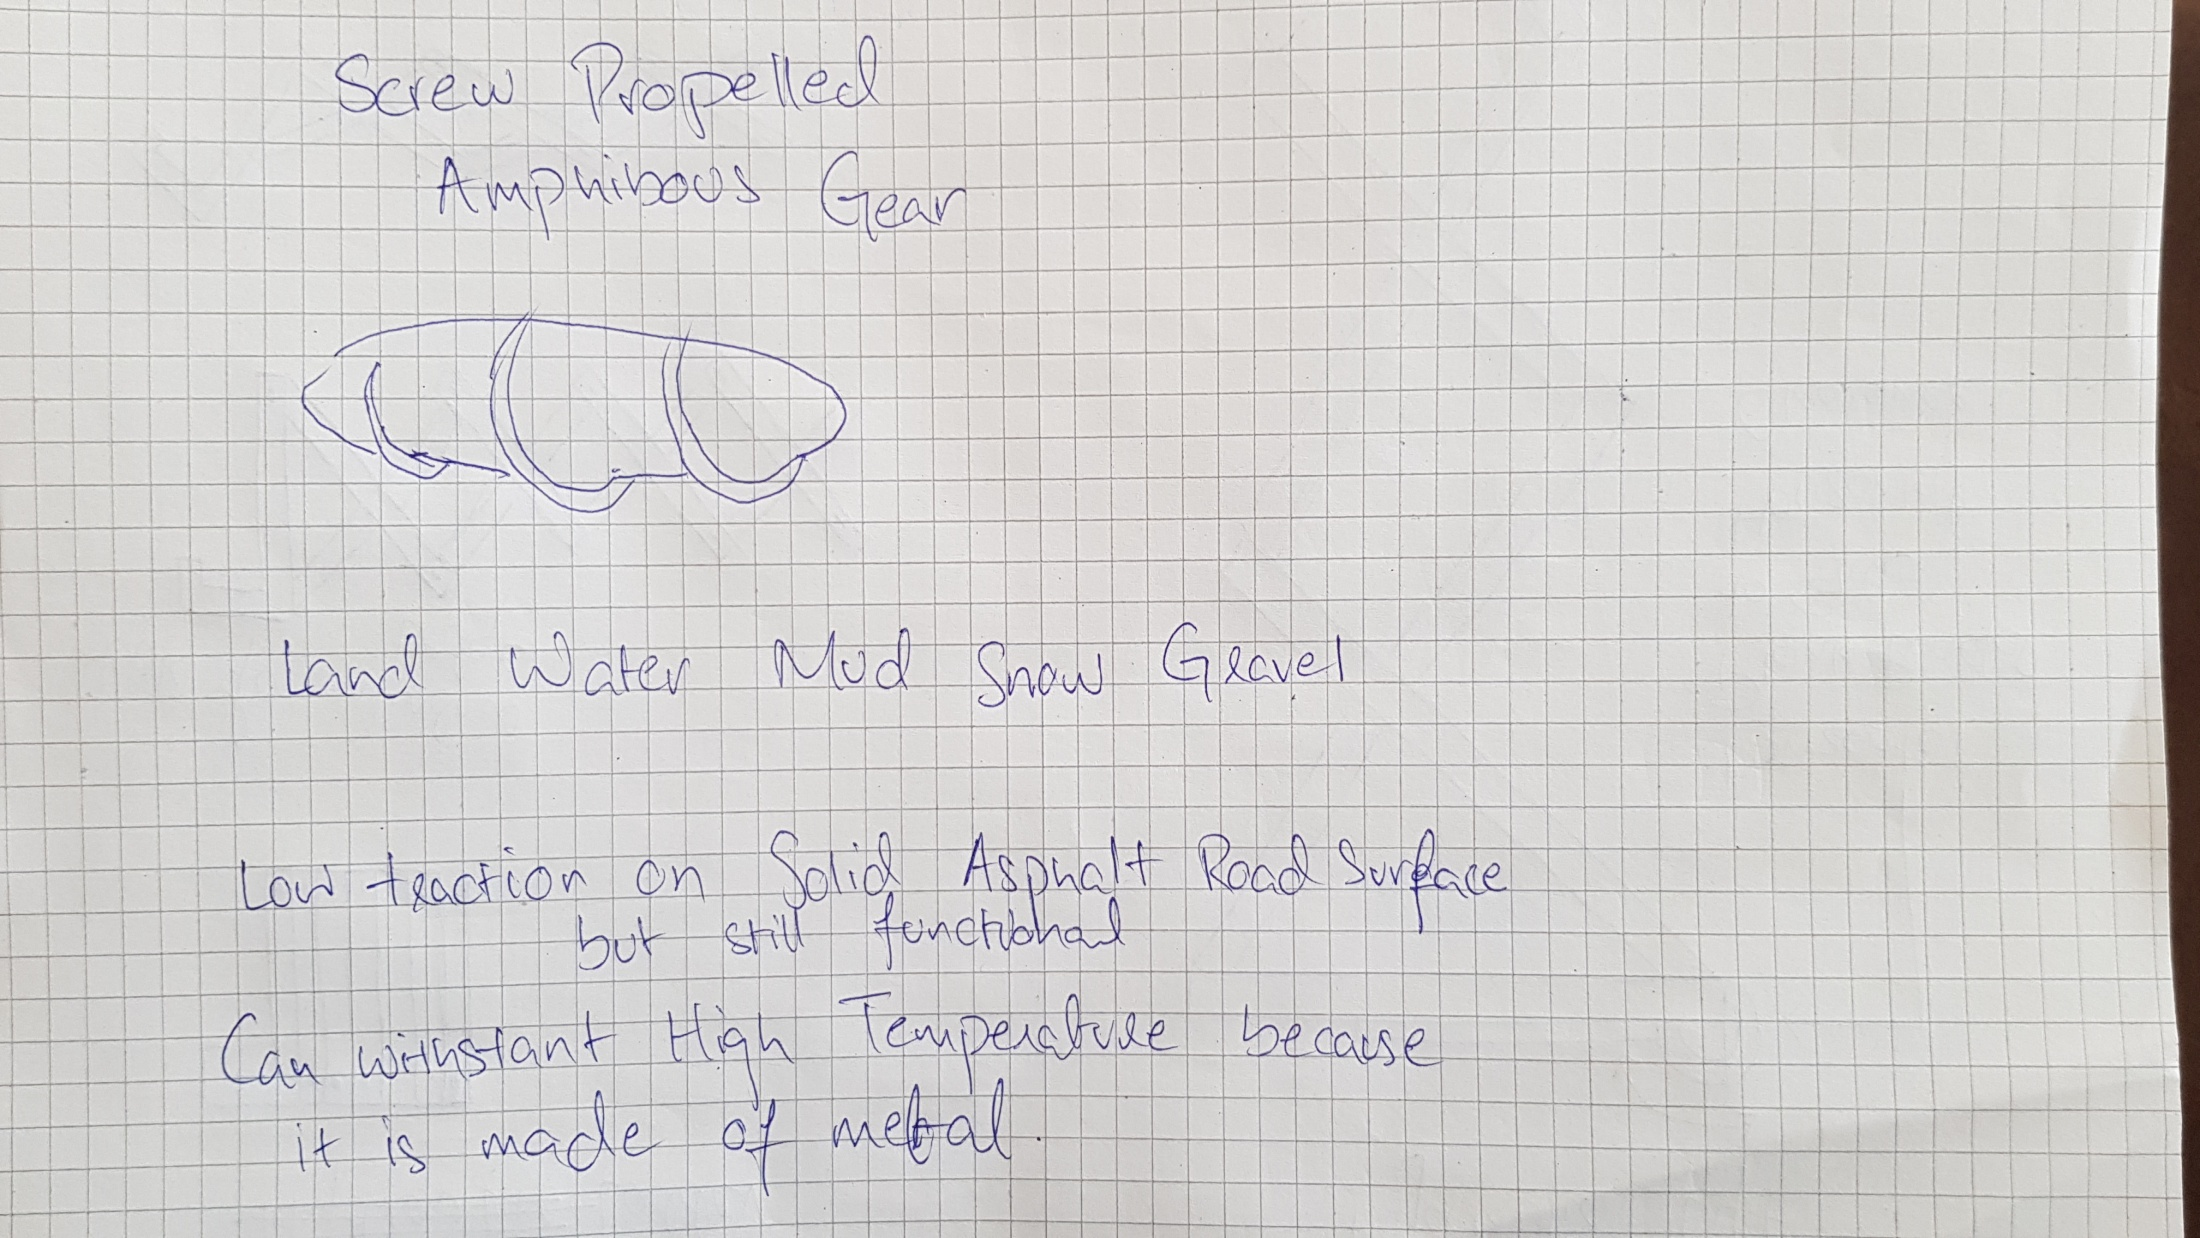 Screw Propelled
Amphibous Gear
Land Water Mud Snow Gravel
Low traction on Solid Asphalt Road Surface
but still functional
Can withstant High Temperature because
it is made of metal.